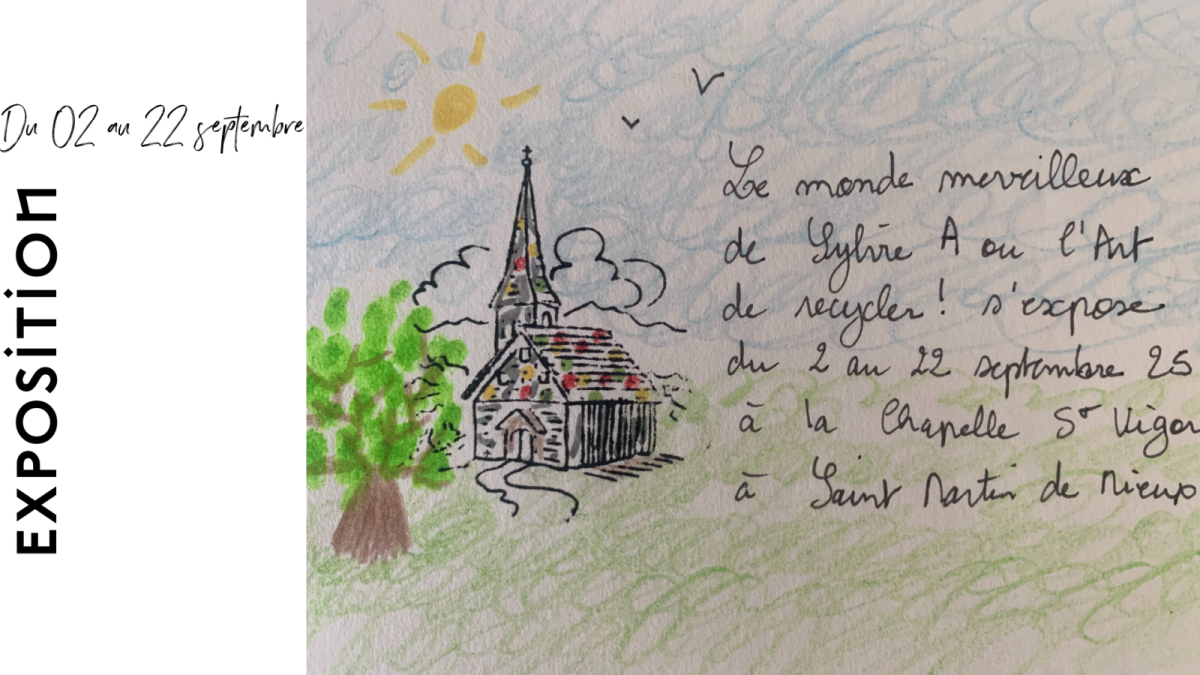 Du 02 au 22 septembre
EXPOSITION
Le monde merveilleux
de Sylvie A ou l'Art
de recycler ! s'expose
du 2 au 22 septembre 25
à la Chapelle St Vigor
à Saint Martin de Mieux